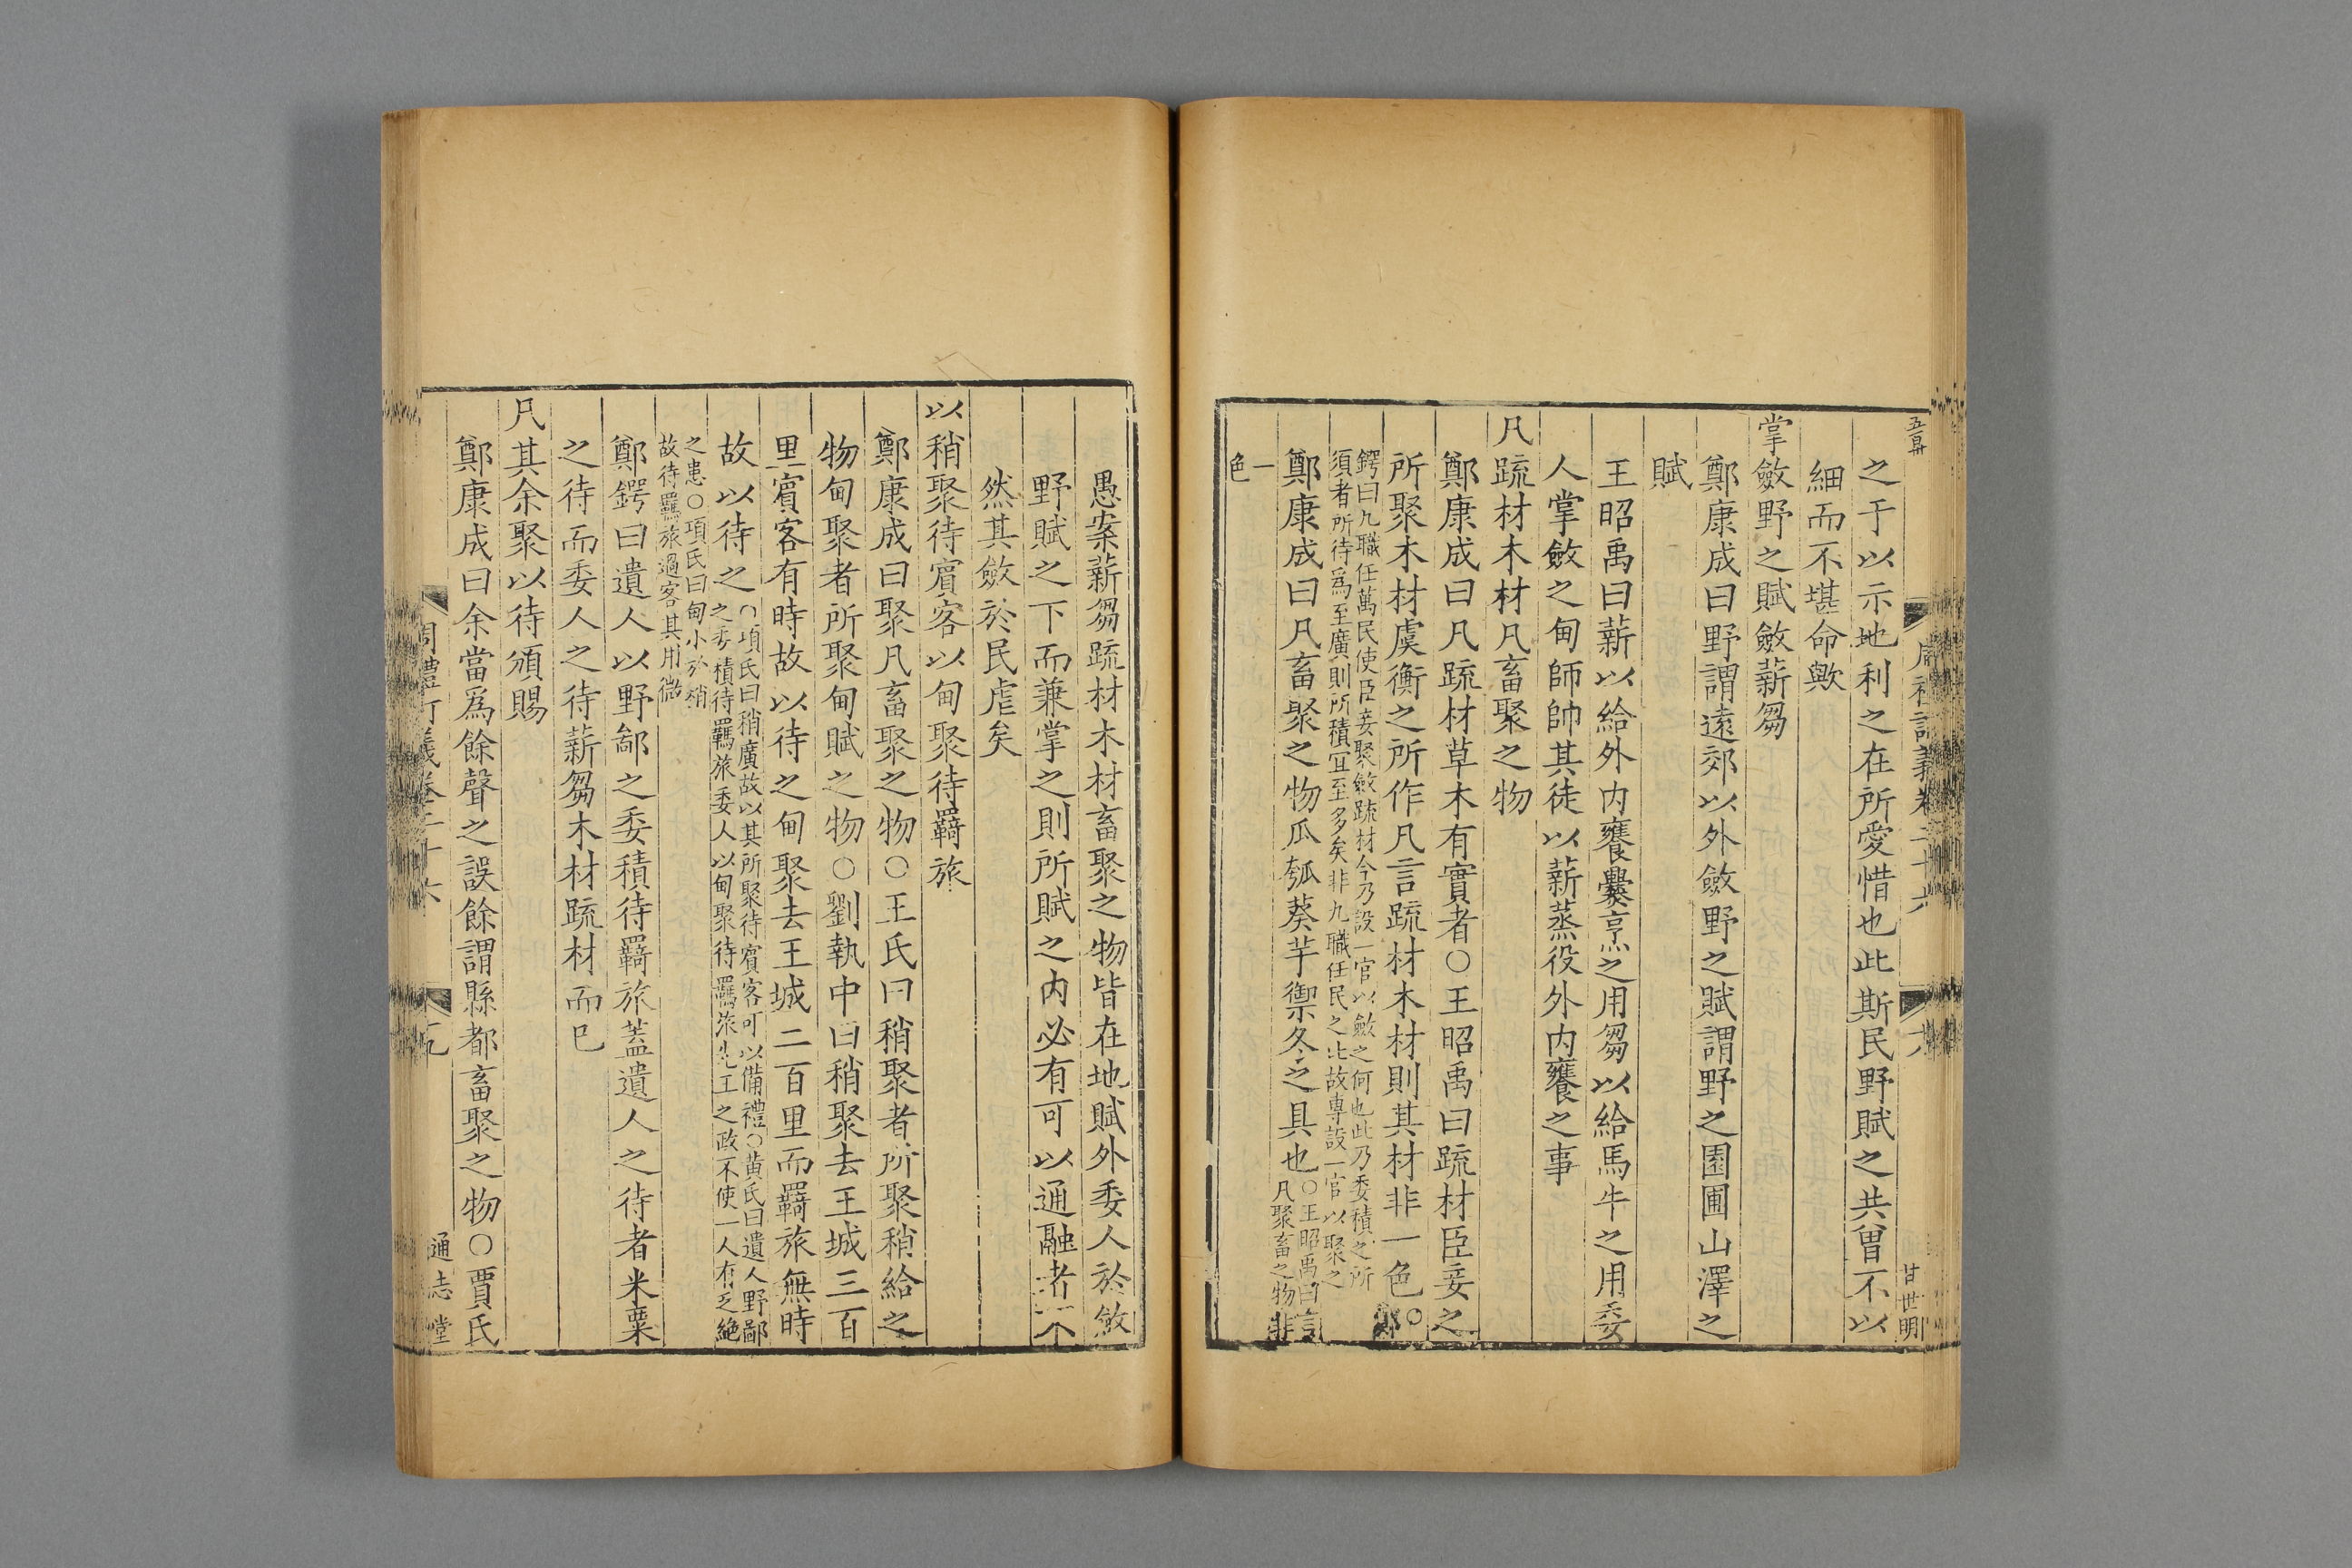 之于以示地利之在所愛惜也此斯民野賦之共曾不以
細而不堪命歟
掌斂野之賦斂薪芻
鄭康成曰野謂遠郊以外斂野之賦謂野之園圃山澤之
賦
王昭禹曰薪以給外内饔爨烹之用芻以給馬牛之用委
人掌斂之甸師帥其徒以薪蒸役外内饔之事
凡疏材木材凡畜聚之物
鄭康成曰凡疏材草木有實者○王昭禹曰疏材臣妾之
所聚木材虞衡之所作凡言疏材木材則其材非一色○鄭
鍔曰九職任萬民使臣妾聚斂疏材今乃設一官以斂之何也此乃委積之所
須者所待爲至廣則所積宜至多矣非九職任民之比故専設一官以聚之
鄭康成曰凡畜聚之物瓜瓠葵芋禦冬之具也○王昭禹曰言
凡聚畜之物非
一
色
甘世明
愚案薪芻疏材木材畜聚之物皆在地賦外委人於斂
野賦之下而兼掌之則所賦之内必有可以通融者不
然其斂於民虐矣
以稍聚待賓客以甸聚待羇旅
鄭康成曰聚凡畜聚之物○王氏曰稍聚者所聚稍給之
物甸聚者所聚甸賦之物○劉執中曰稍聚去王城三百
里賓客有時故以待之甸聚去王城二百里而羇旅無時
故以待之○項氏曰稍廣故以其所聚待賓客可以備禮○黄氏曰遺人野鄙
之委積待羈旅委人以甸聚待羈旅先王之政不使一人有乏絶
之患○項氏曰甸小於稍
故待羈旅過客其用微
鄭鍔曰遺人以野鄙之委積待羇旅蓋遺人之待者米粟
之待而委人之待薪芻木材疏材而已
凡其余聚以待頒賜
鄭康成曰余當爲餘聲之誤餘謂縣都畜聚之物○賈氏
周禮訂義卷二十六
通志堂